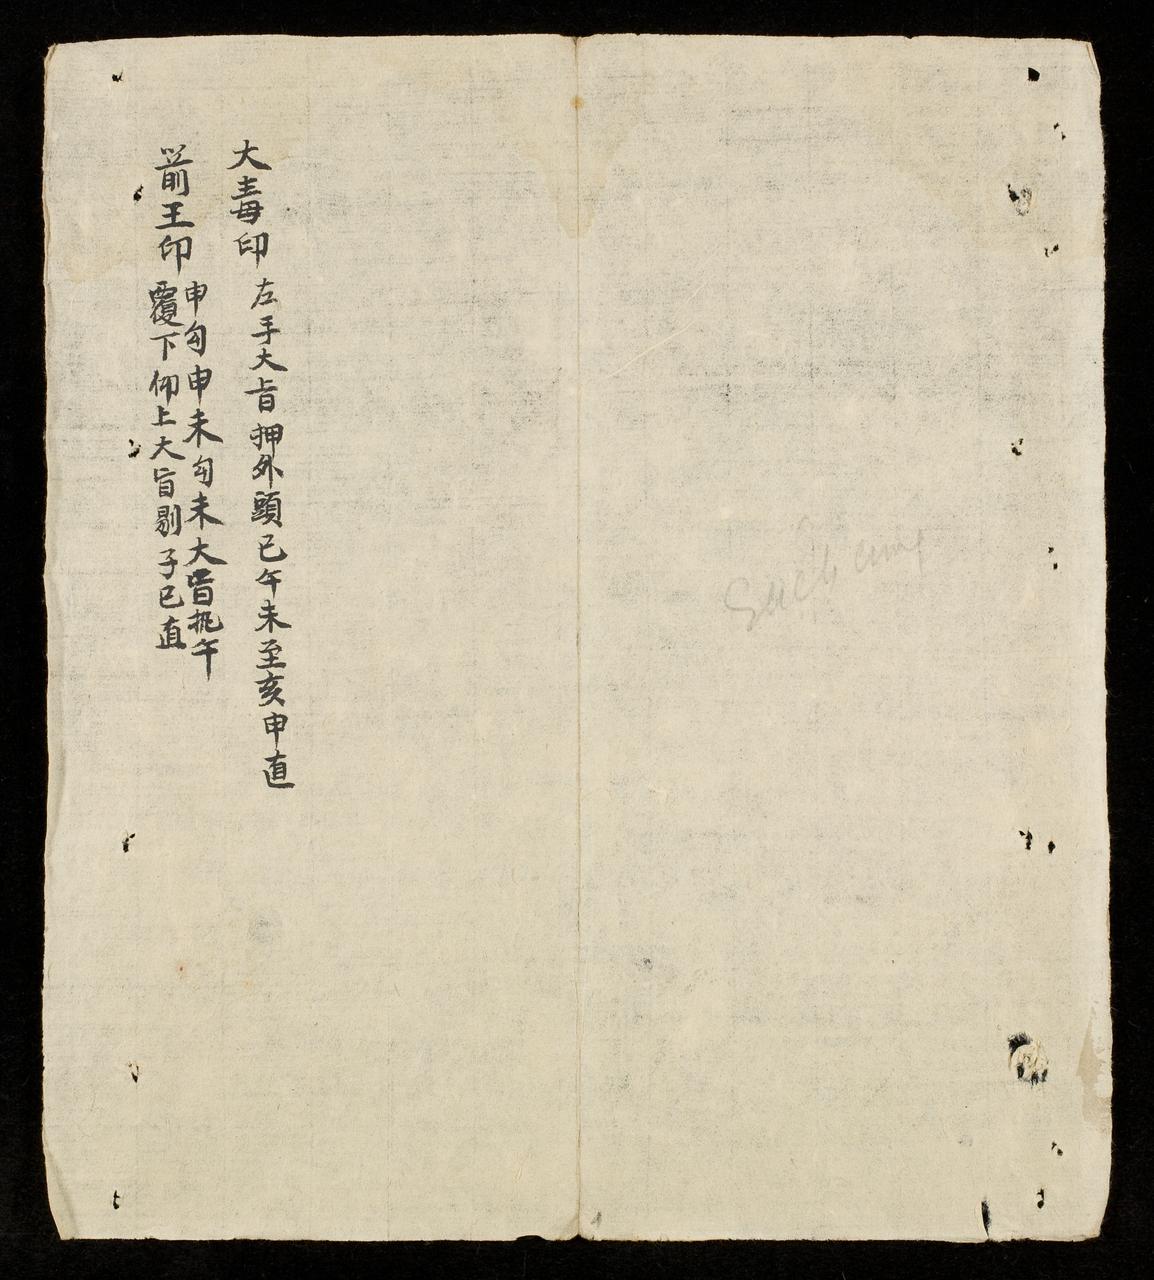 大毒印 左手大旨押外頭已午未至亥申直
前王印 申勾申未勾未大旨挑午
覆下仰上大旨剔子已直